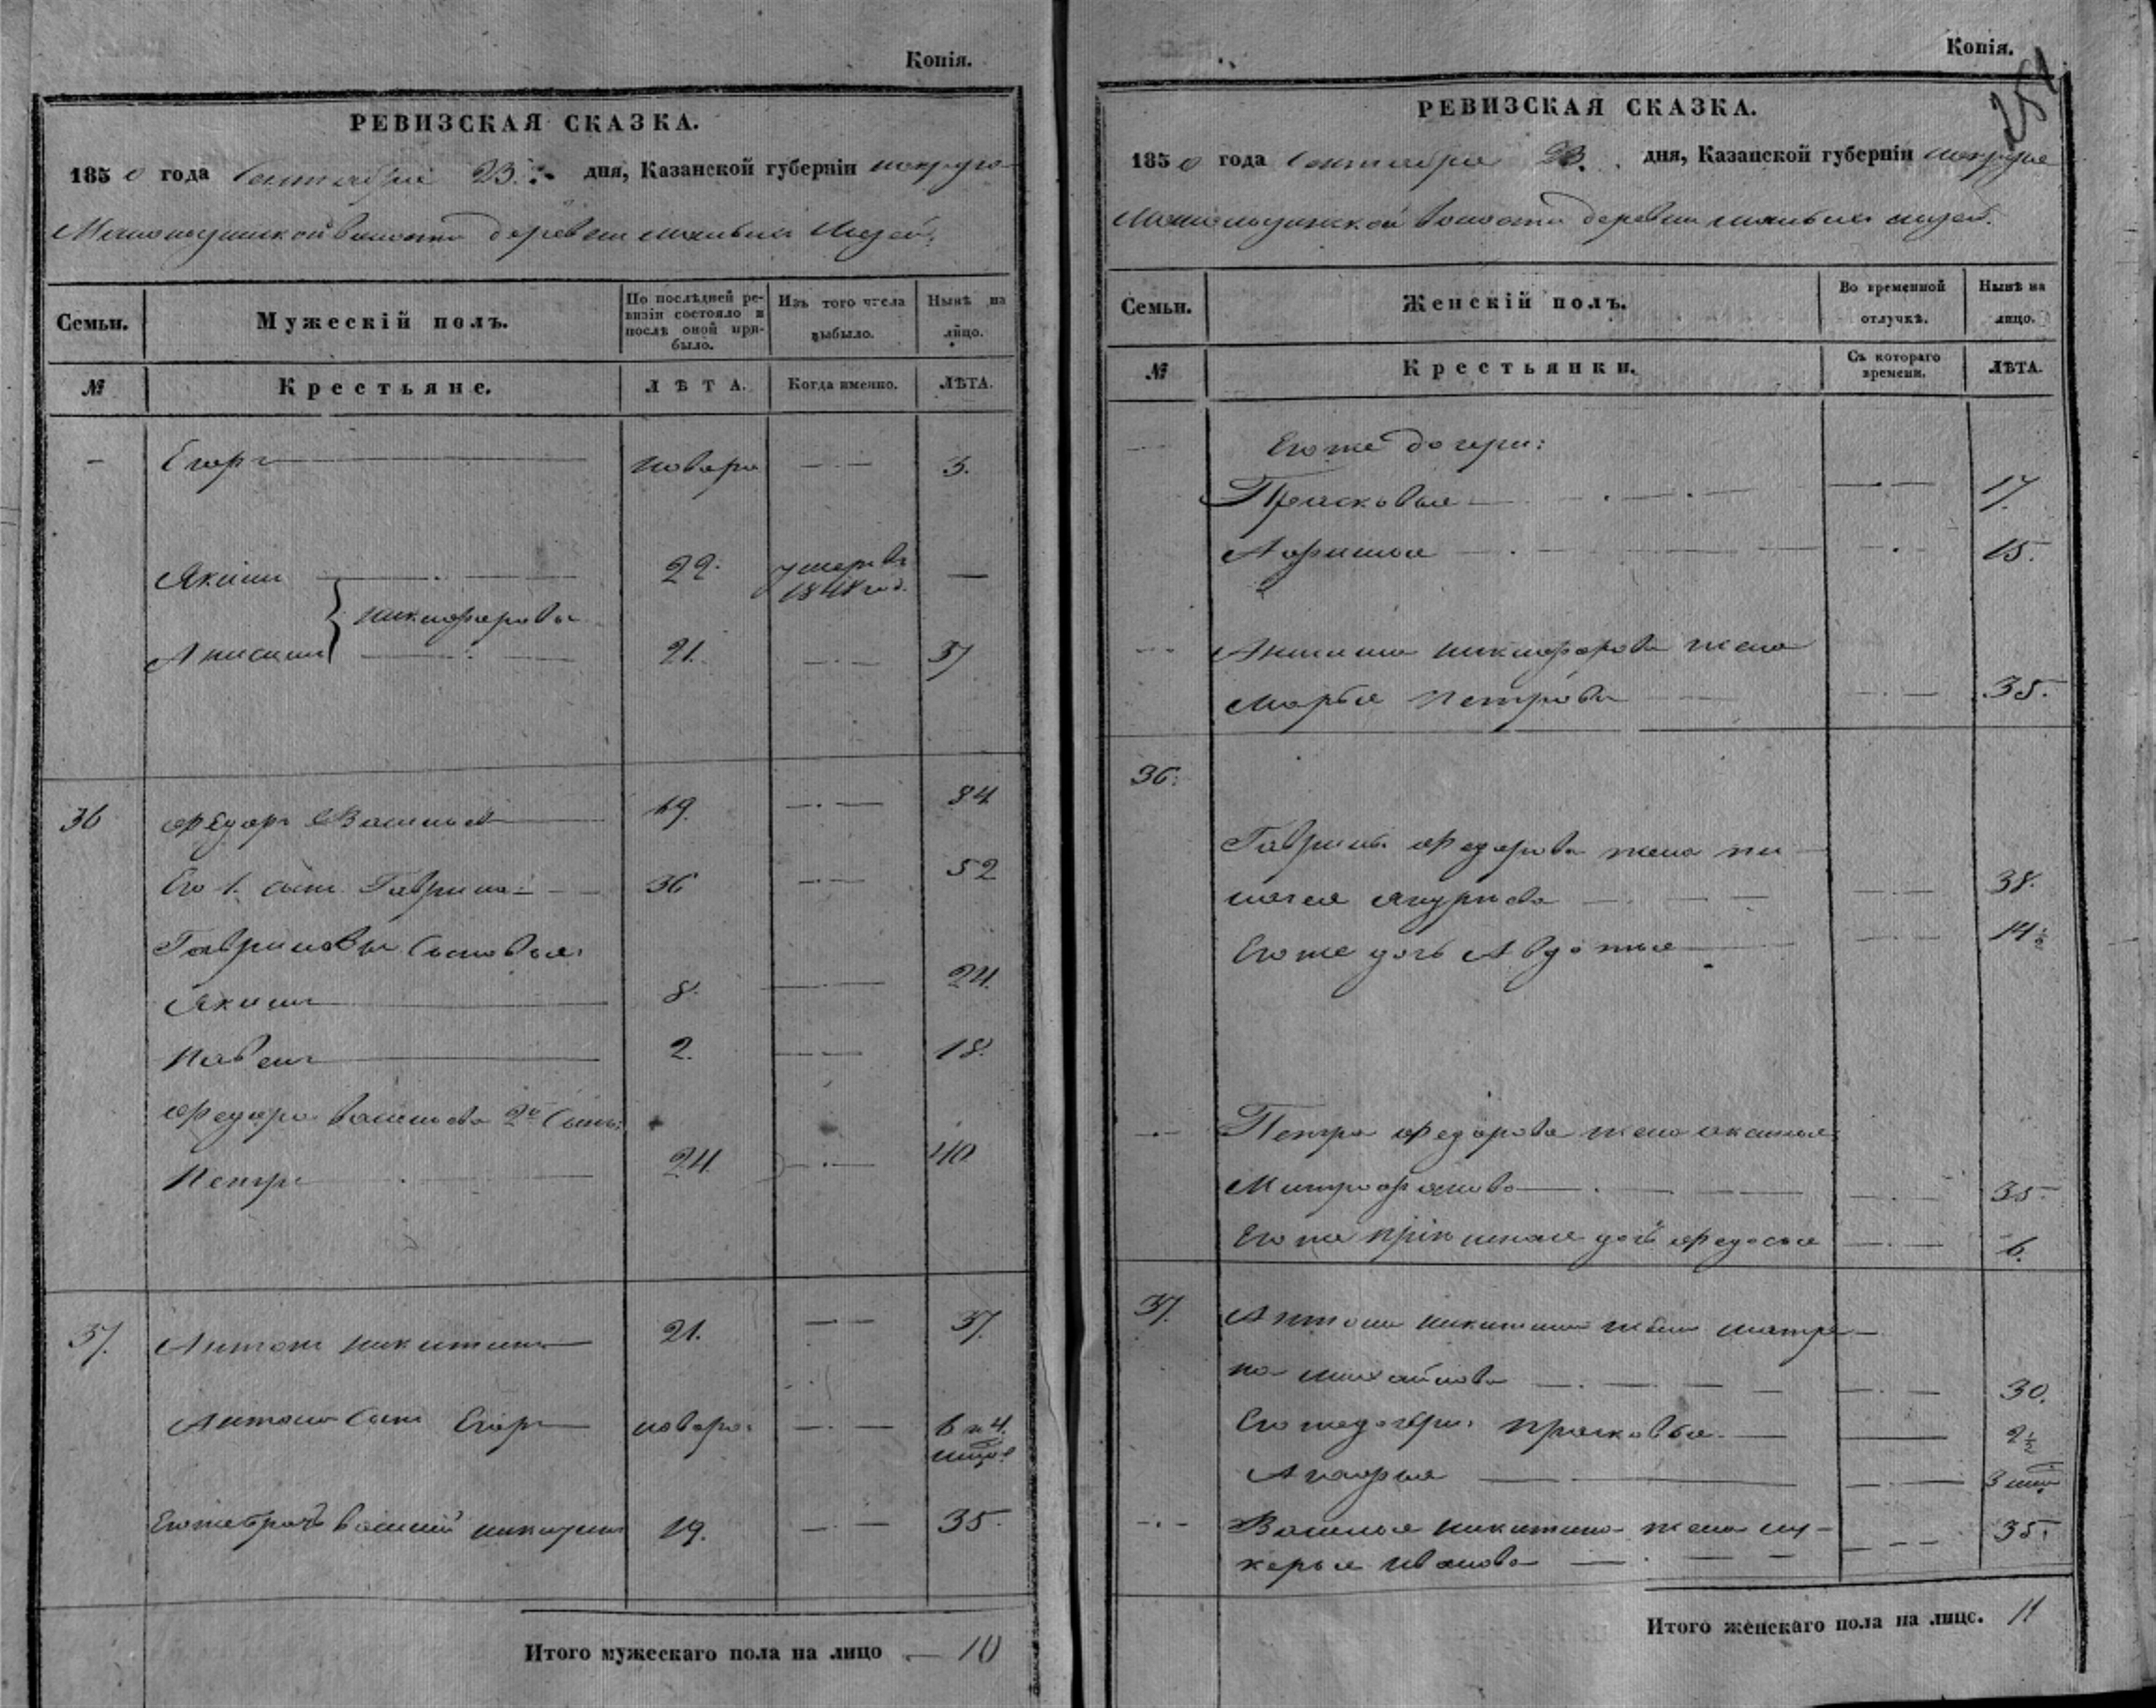 Копія.
РЕВИЗСКАЯ СКАЗКА.
1850 года Сентября 23 дня, Казанской губерніи
волости деревни малыхъ
Семьи.
Мужескій полъ.
По послѣдней ре-
визіи состояло и
послѣ оной при-
было.
Изъ того числа
выбыло.
Нынѣ на
лицо.
№
Крестьяне.
ЛѢТА.
Когда именно.
ЛѢТА.
Егоръ новоро 5.
Якимъ 29. умеръ въ
1848 год.
Никифоровы
Анисимъ 21. 37
36 Федоръ Васильевъ 19. 84
Его 1. сынъ Гаврила 36 52
Гавриловы Сыновья:
Якимъ 8. 24.
Павелъ 2. 18.
Федора Васильева 2й Сынъ:
Петръ 24 40
37. Антонъ Никитинъ 21. 37.
Антона Сынъ Егоръ новоро. 6 и 4.
Егоже братъ Василий Никитинъ 19. 35.
Итого мужескаго пола на лицо 10
Копія.
РЕВИЗСКАЯ СКАЗКА.
1850 года Сентября 23. дня, Казанской губерніи
волости деревни малыхъ
Семьи.
Женскій полъ.
Во временной
отлучкѣ.
Нынѣ на
лицо.
№
Крестьянки.
Съ котораго
времени.
ЛѢТА.
Егоже дочери:
Прасковья 17.
15.
Анисима Никифорова жена
Марья Петрова 35.
36.
Гаврилы Федорова жена пи-
38.
Егоже дочь Авдотья 14½
Петра Федорова жена
Митрофанова 35.
дочь Федосья 6.
37. Антона Никитина жена Матре-
на Михайлова 30.
Егоже дочери: Прасковья 2½
3
Василья Никитина жена лу-
керья Иванова 35.
Итого женскаго пола на лице. 11